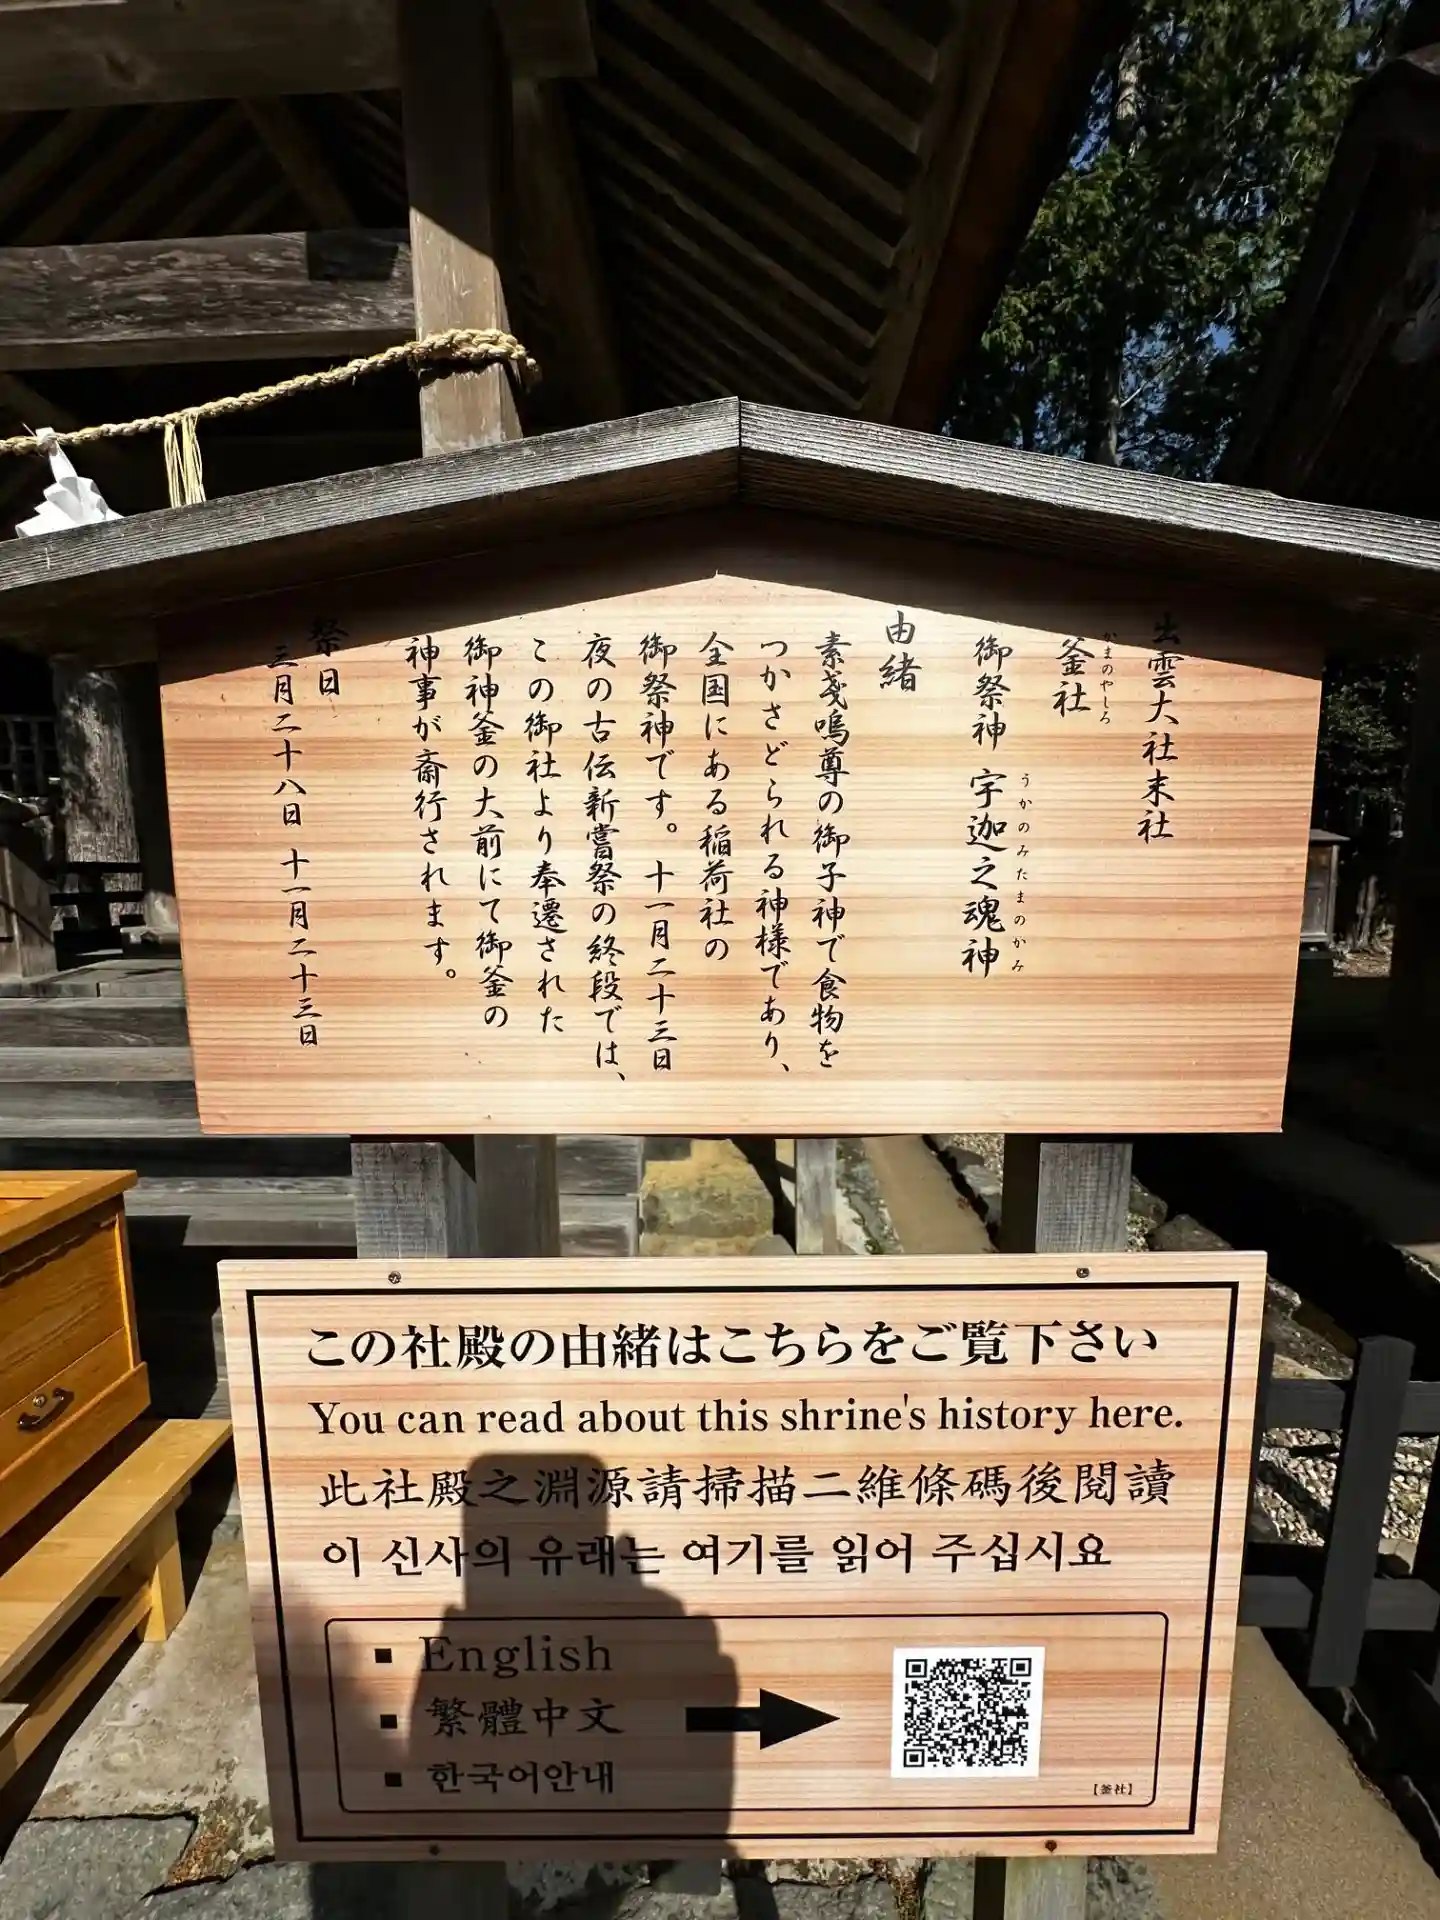 出雲大社末社
かまのやしろ
釜社
うかのみたまのかみ
御祭神 宇迦之魂神
由緒
素戔嗚尊の御子神で食物を
つかさどられる神様であり、
全国にある稲荷社の
御祭神です。十一月二十三日
夜の古伝新嘗祭の終段では、
この御社より奉遷された
御神釜の大前にて御釜の
神事が斎行されます。
祭日
三月二十八日 十一月二十三日
この社殿の由緒はこちらをご覧下さい
You can read about this shrine's history here.
此社殿之淵源請掃描二維條碼後閱讀
이 신사의 유래는 여기를 읽어 주십시요
▪ English
▪ 繁體中文
▪ 한국어안내
【釜社】